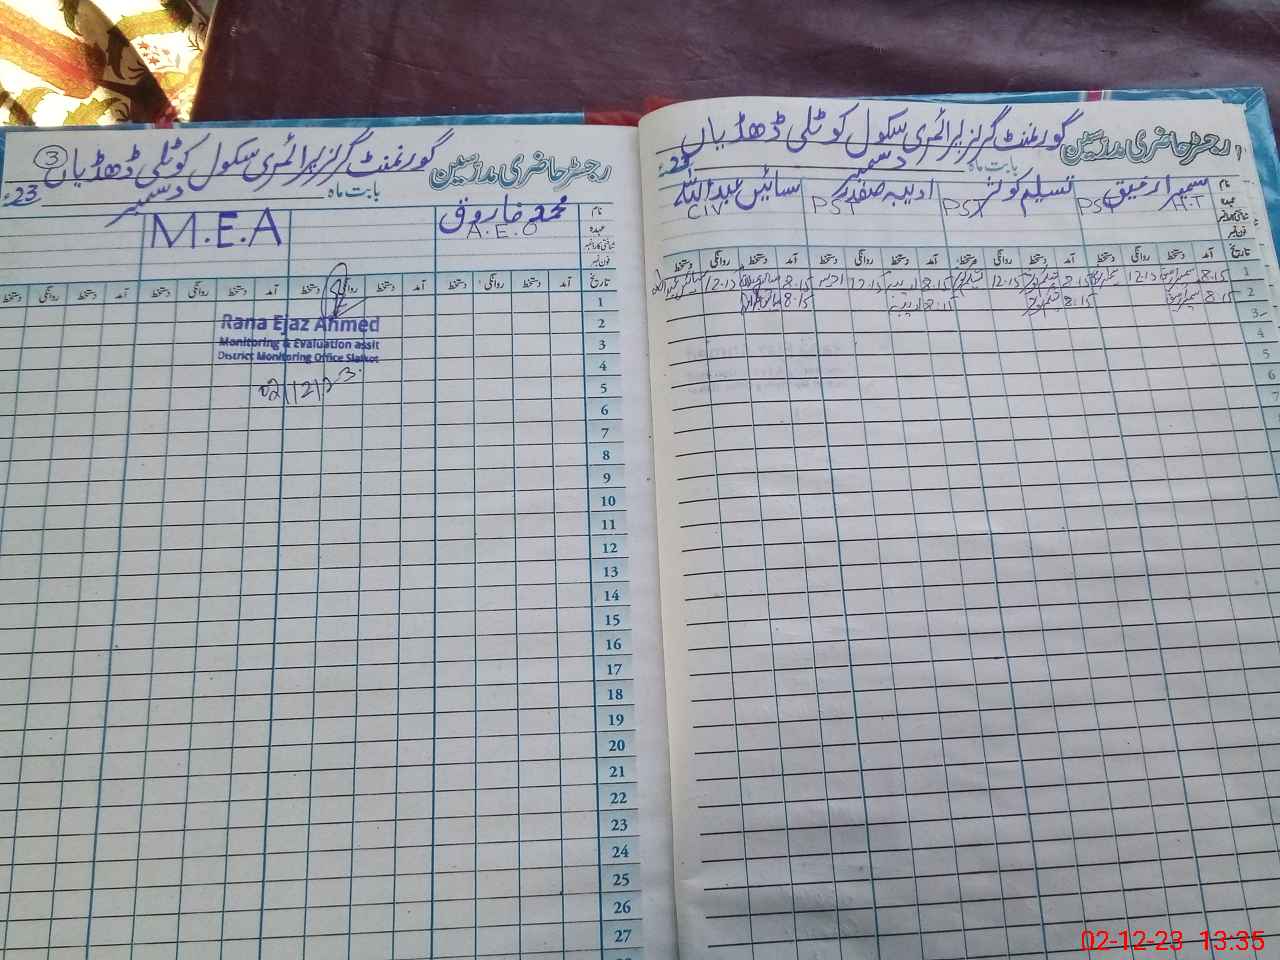 رجسٹر حاضری مدرسین گورنمنٹ گرلز پرائمری سکول کوٹلی ڈھڈیاں
بابت ماہ دسمبر 23
نام سمیرا رفیق تسلیم کوثر ادیبہ صفدر سائیں عبداللہ
عہدہ H.T PST PST PST C IV
شناختی کارڈ نمبر
فون نمبر
تاریخ آمد دستخط روانگی دستخط آمد دستخط روانگی دستخط آمد دستخط روانگی دستخط آمد دستخط روانگی دستخط
1 8.15 12-15 8.15 12-15 8.15 12-15 8.15 12-15
2 8.15 8.15 8.15 8.15
3
4
5
6
7
رجسٹر حاضری مدرسین گورنمنٹ گرلز پرائمری سکول کوٹلی ڈھڈیاں 3
بابت ماہ دسمبر 23
نام محمد فاروق M.E.A
عہدہ A.E.O
شناختی کارڈ نمبر
فون نمبر
تاریخ آمد دستخط روانگی دستخط آمد دستخط روانگی دستخط آمد دستخط روانگی دستخط آمد دستخط روانگی دستخط
1
2
3
4
5
6
7
8
9
10
11
12
13
14
15
16
17
18
19
20
21
22
23
24
25
26
27
Rana Ejaz Ahmed
Monitoring & Evaluation assit
District Monitoring Office Sialkot
02/12/23
02-12-23 13:35